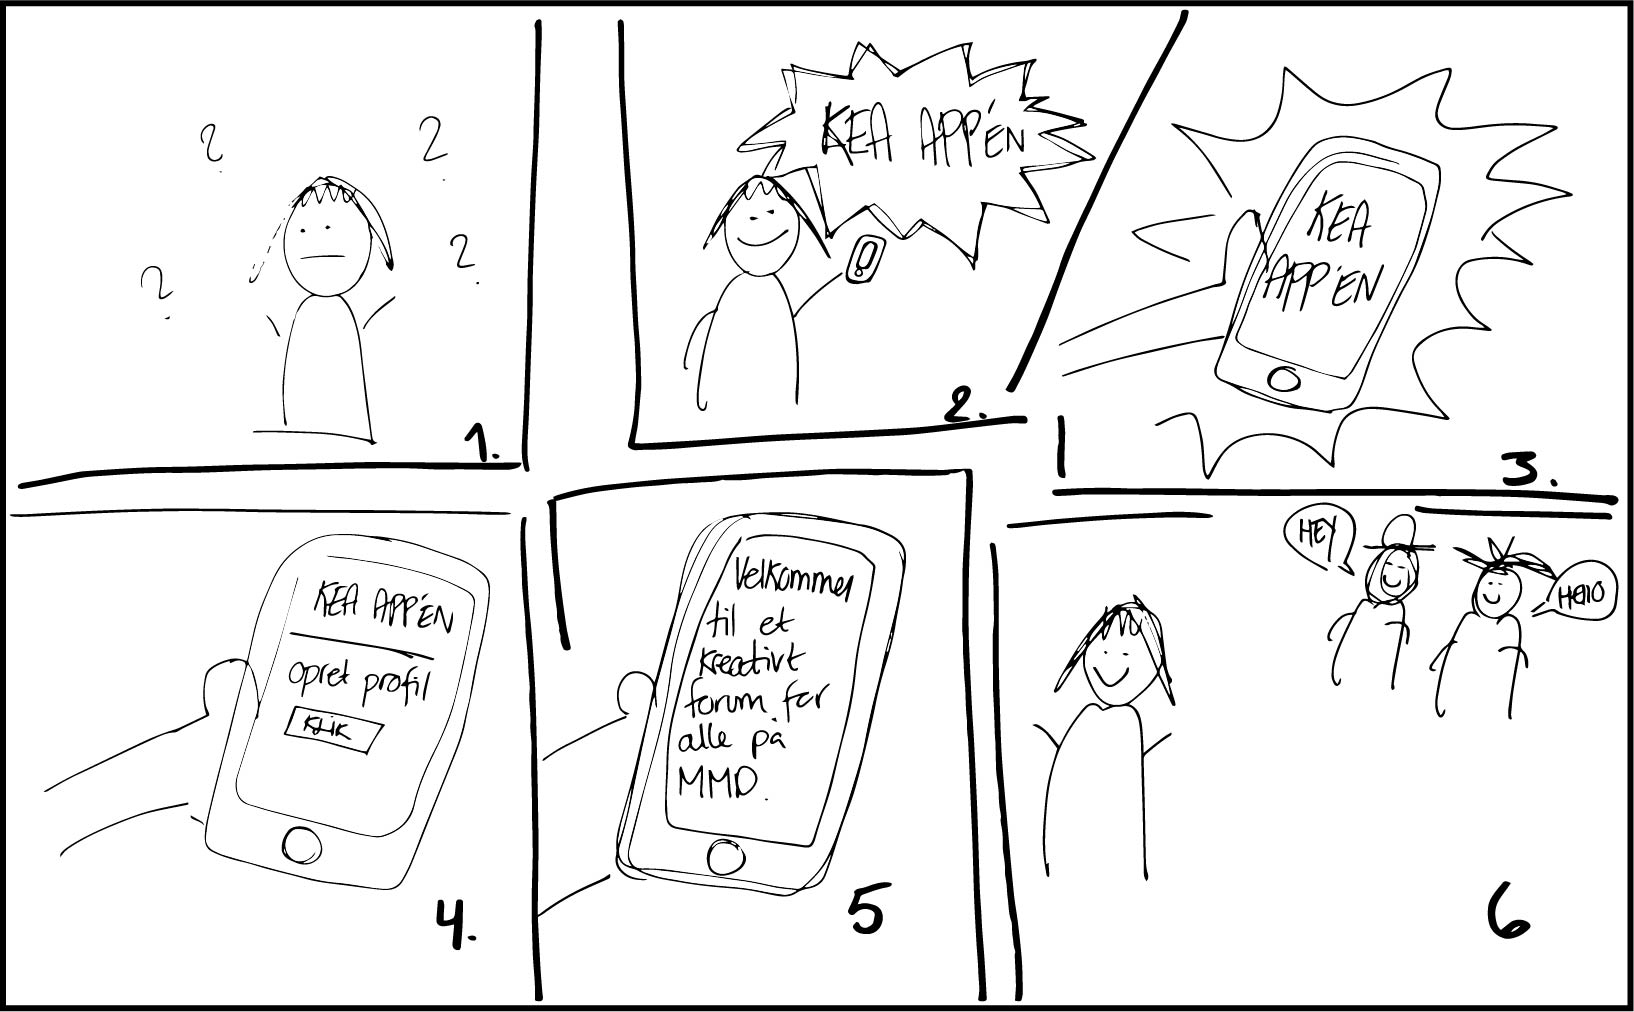 ?
?
?
?
1.
KEA APP'ÉN
!
2.
KEA
APP'EN
3.
KEA APP'ÉN
opret profil
KLIK
4.
Velkommen
til et
kreativt
forum for
alle på
MMD.
5
HEY
HELLO
6